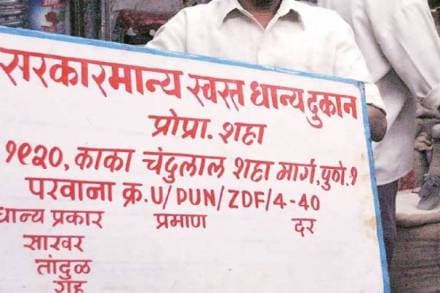 सरकारमान्य स्वस्त धान्य दुकान
प्रोप्रा. शहा
१९२०, काका चंदुलाल शहा मार्ग, पुणे. १
परवाना क्र. U/DUN/ZDF/4-40
धान्य प्रकार प्रमाण दर
साखर
तांदुळ
गहू